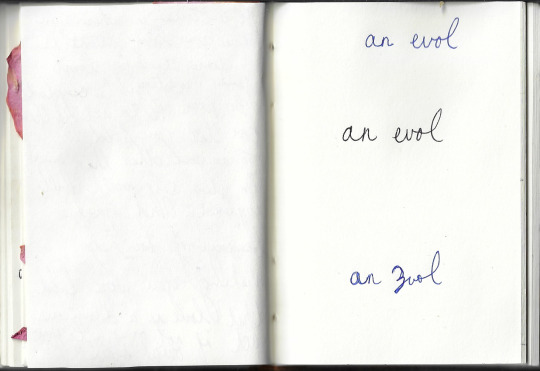 an evol
an evol
an 3vol